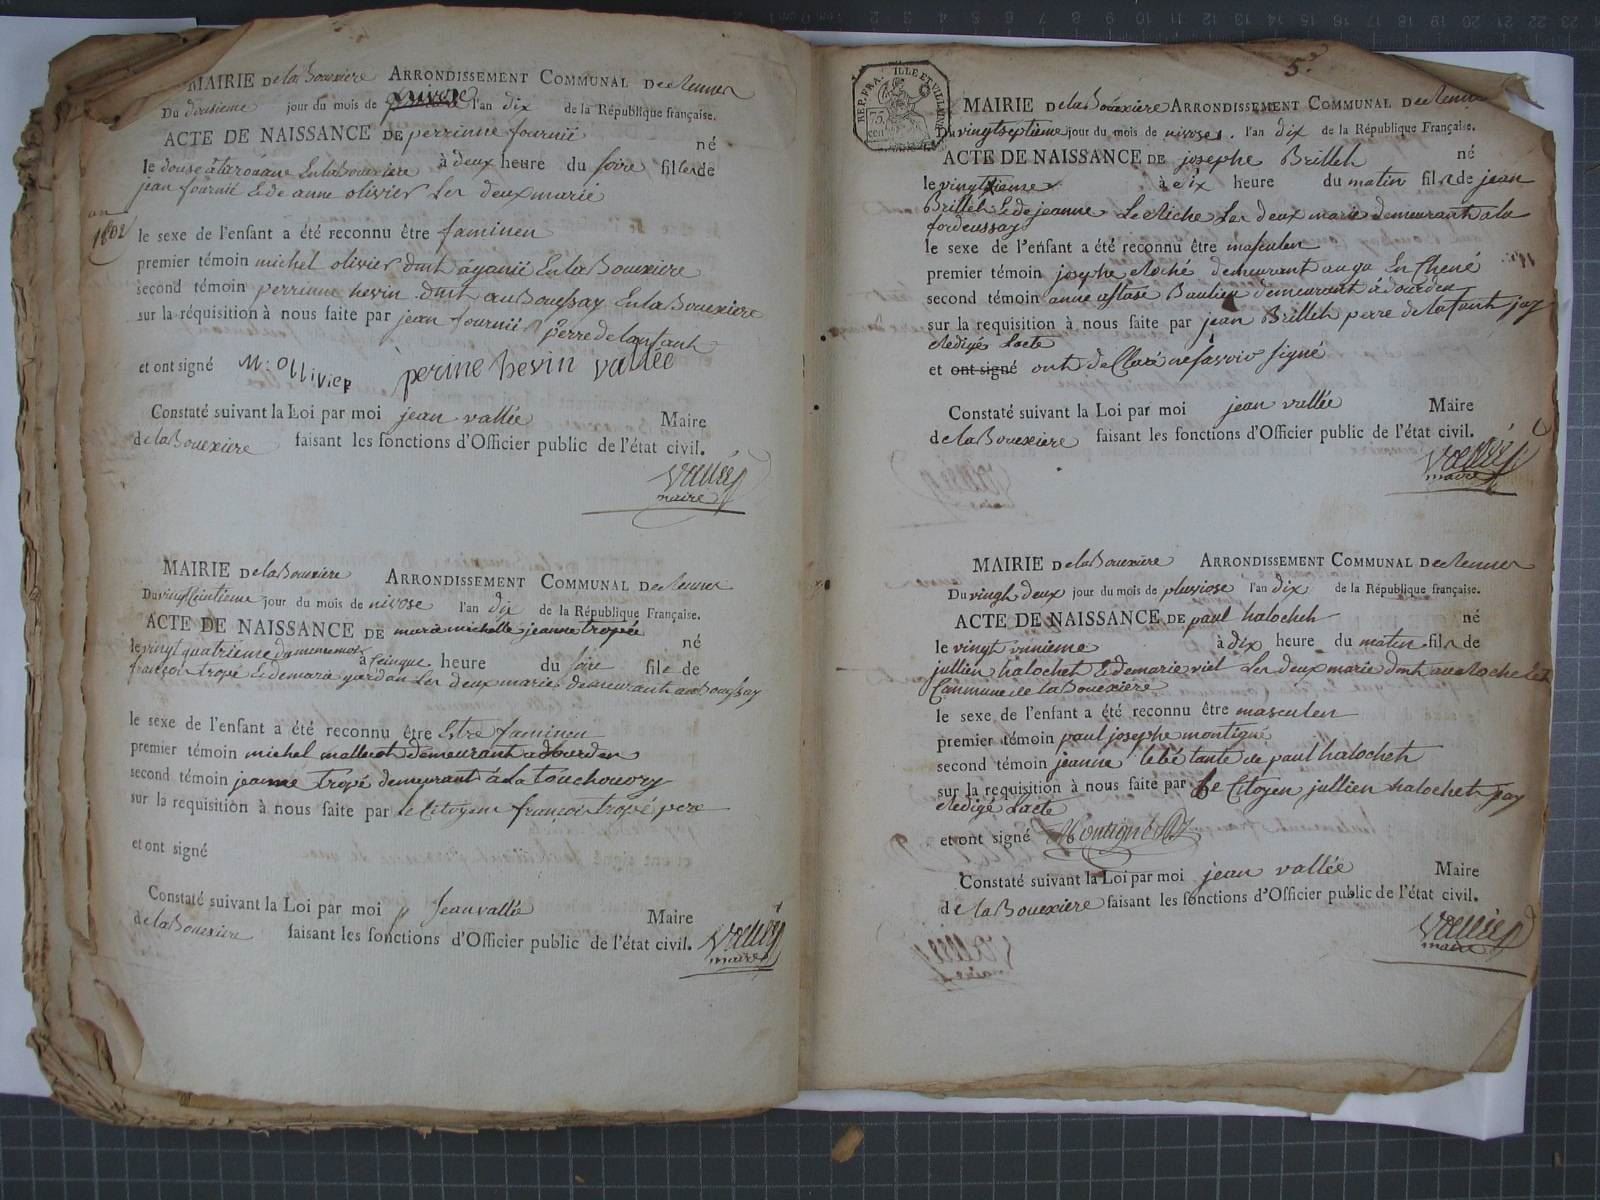 MAIRIE De la Bouexiere ARRONDISSEMENT COMMUNAL De Rennes
Du douxieme jour du mois de nivose l'an dix de la République française.
ACTE DE NAISSANCE DE perrinne fournié
né
le douse à la roüane En la Bouexiere à deux heure du soire fille de
jean fournié Et de anne olivier Les deux marie
an
1802
le sexe de l'enfant a été reconnu être faminen
premier témoin michel olivier dmt à ganié En la Bouexiere
second témoin perrinne hevin dmt au Boussay En la Bouexiere
sur la réquisition à nous faite par jean fournié perre de lanfant
et ont signé M: ollivier perine hevin vallée
Constaté suivant la Loi par moi jean vallée Maire
de la Bouexiere faisant les fonctions d'Officier public de l'état civil.
vallée
maire
MAIRIE De la Bouexiere ARRONDISSEMENT COMMUNAL De Rennes
Du vingt Cintieme jour du mois de nivose l'an dix de la République Française.
ACTE DE NAISSANCE DE marie michelle jeanne tropée
né
le vingt quatrieme du meme mois à Ceinque heure du soire fille de
françois tropé Et de marie gardan Les deux marie demeurant au Boussay
le sexe de l'enfant a été reconnu être Estre faminen
premier témoin michel mallecot demeurant a dourden
second témoin jeanne tropé demeurant à la touchoury
sur la requisition à nous faite par le Citoyen françois tropé pere
et ont signé
Constaté suivant la Loi par moi jean vallé Maire
de la Bouexiere faisant les fonctions d'Officier public de l'état civil.
vallée
maire
5.e
REP. FRA. ILLE ET VILAINE
75
cen
MAIRIE De la Bouexiere ARRONDISSEMENT COMMUNAL De Rennes
Du vingt septième jour du mois de nivose l'an dix de la République Française.
ACTE DE NAISSANCE DE josephe Brilleh né
le vingt sieme à dix heure du matin fils de jean
Brilleh Et de jeanne Le Riche Les deux marie demeurant a la
fordeussay
le sexe de l'enfant a été reconnu être masculen
premier témoin josephe Roché demeurant au ga En Chené
second témoin anne astase Baulieu demeurant à dourden
sur la requisition à nous faite par jean Brilleh perre de lanfant jay
Redigé Lacte
et ont signé ont de Claré ne savoir signé
Constaté suivant la Loi par moi jean vallée Maire
de la Bouexiere faisant les fonctions d'Officier public de l'état civil.
vallée
maire
MAIRIE De la Bouexiere ARRONDISSEMENT COMMUNAL De Rennes
Du vingh deux jour du mois de pluviose l'an dix de la République Française.
ACTE DE NAISSANCE DE paul halocheh né
le vingt unnieme à dix heure du matin fils de
jullien halocheh Et de marie viel Les deux marie dmt au Rocheleh
Commune de la Bouexiere
le sexe de l'enfant a été reconnu être masculen
premier témoin paul josephe montigné
second témoin jeanne lebé tante de paul halocheh
sur la requisition à nous faite par Le Citoyen jullien halocheh jay
Redigé Lacte
et ont signé Montigné
Constaté suivant la Loi par moi jean vallée Maire
de la Bouexiere faisant les fonctions d'Officier public de l'état civil.
vallée
maire